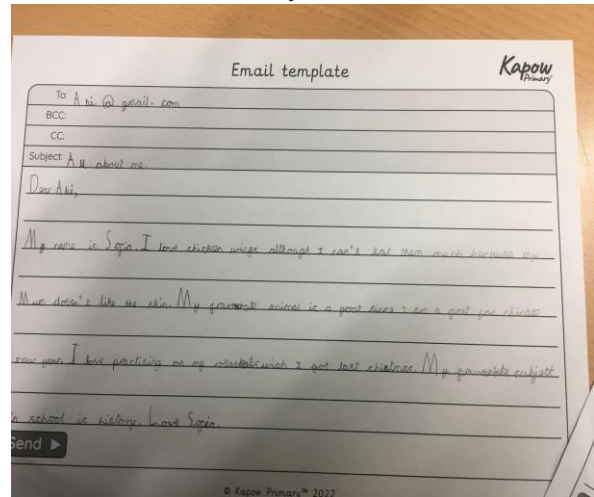 Email template
Kapow
Primary
To: Ani @ gmail. com
BCC:
CC:
Subject: All about me.
Dear Ani,
My name is I love chicken wings although I can't eat them much because my
Mum doesn't like the skin. My animal is a goat since I am a goat for
new year. I love practising on my wich I got last My subject
in school is history. Love
Send
© Kapow Primary™ 2022